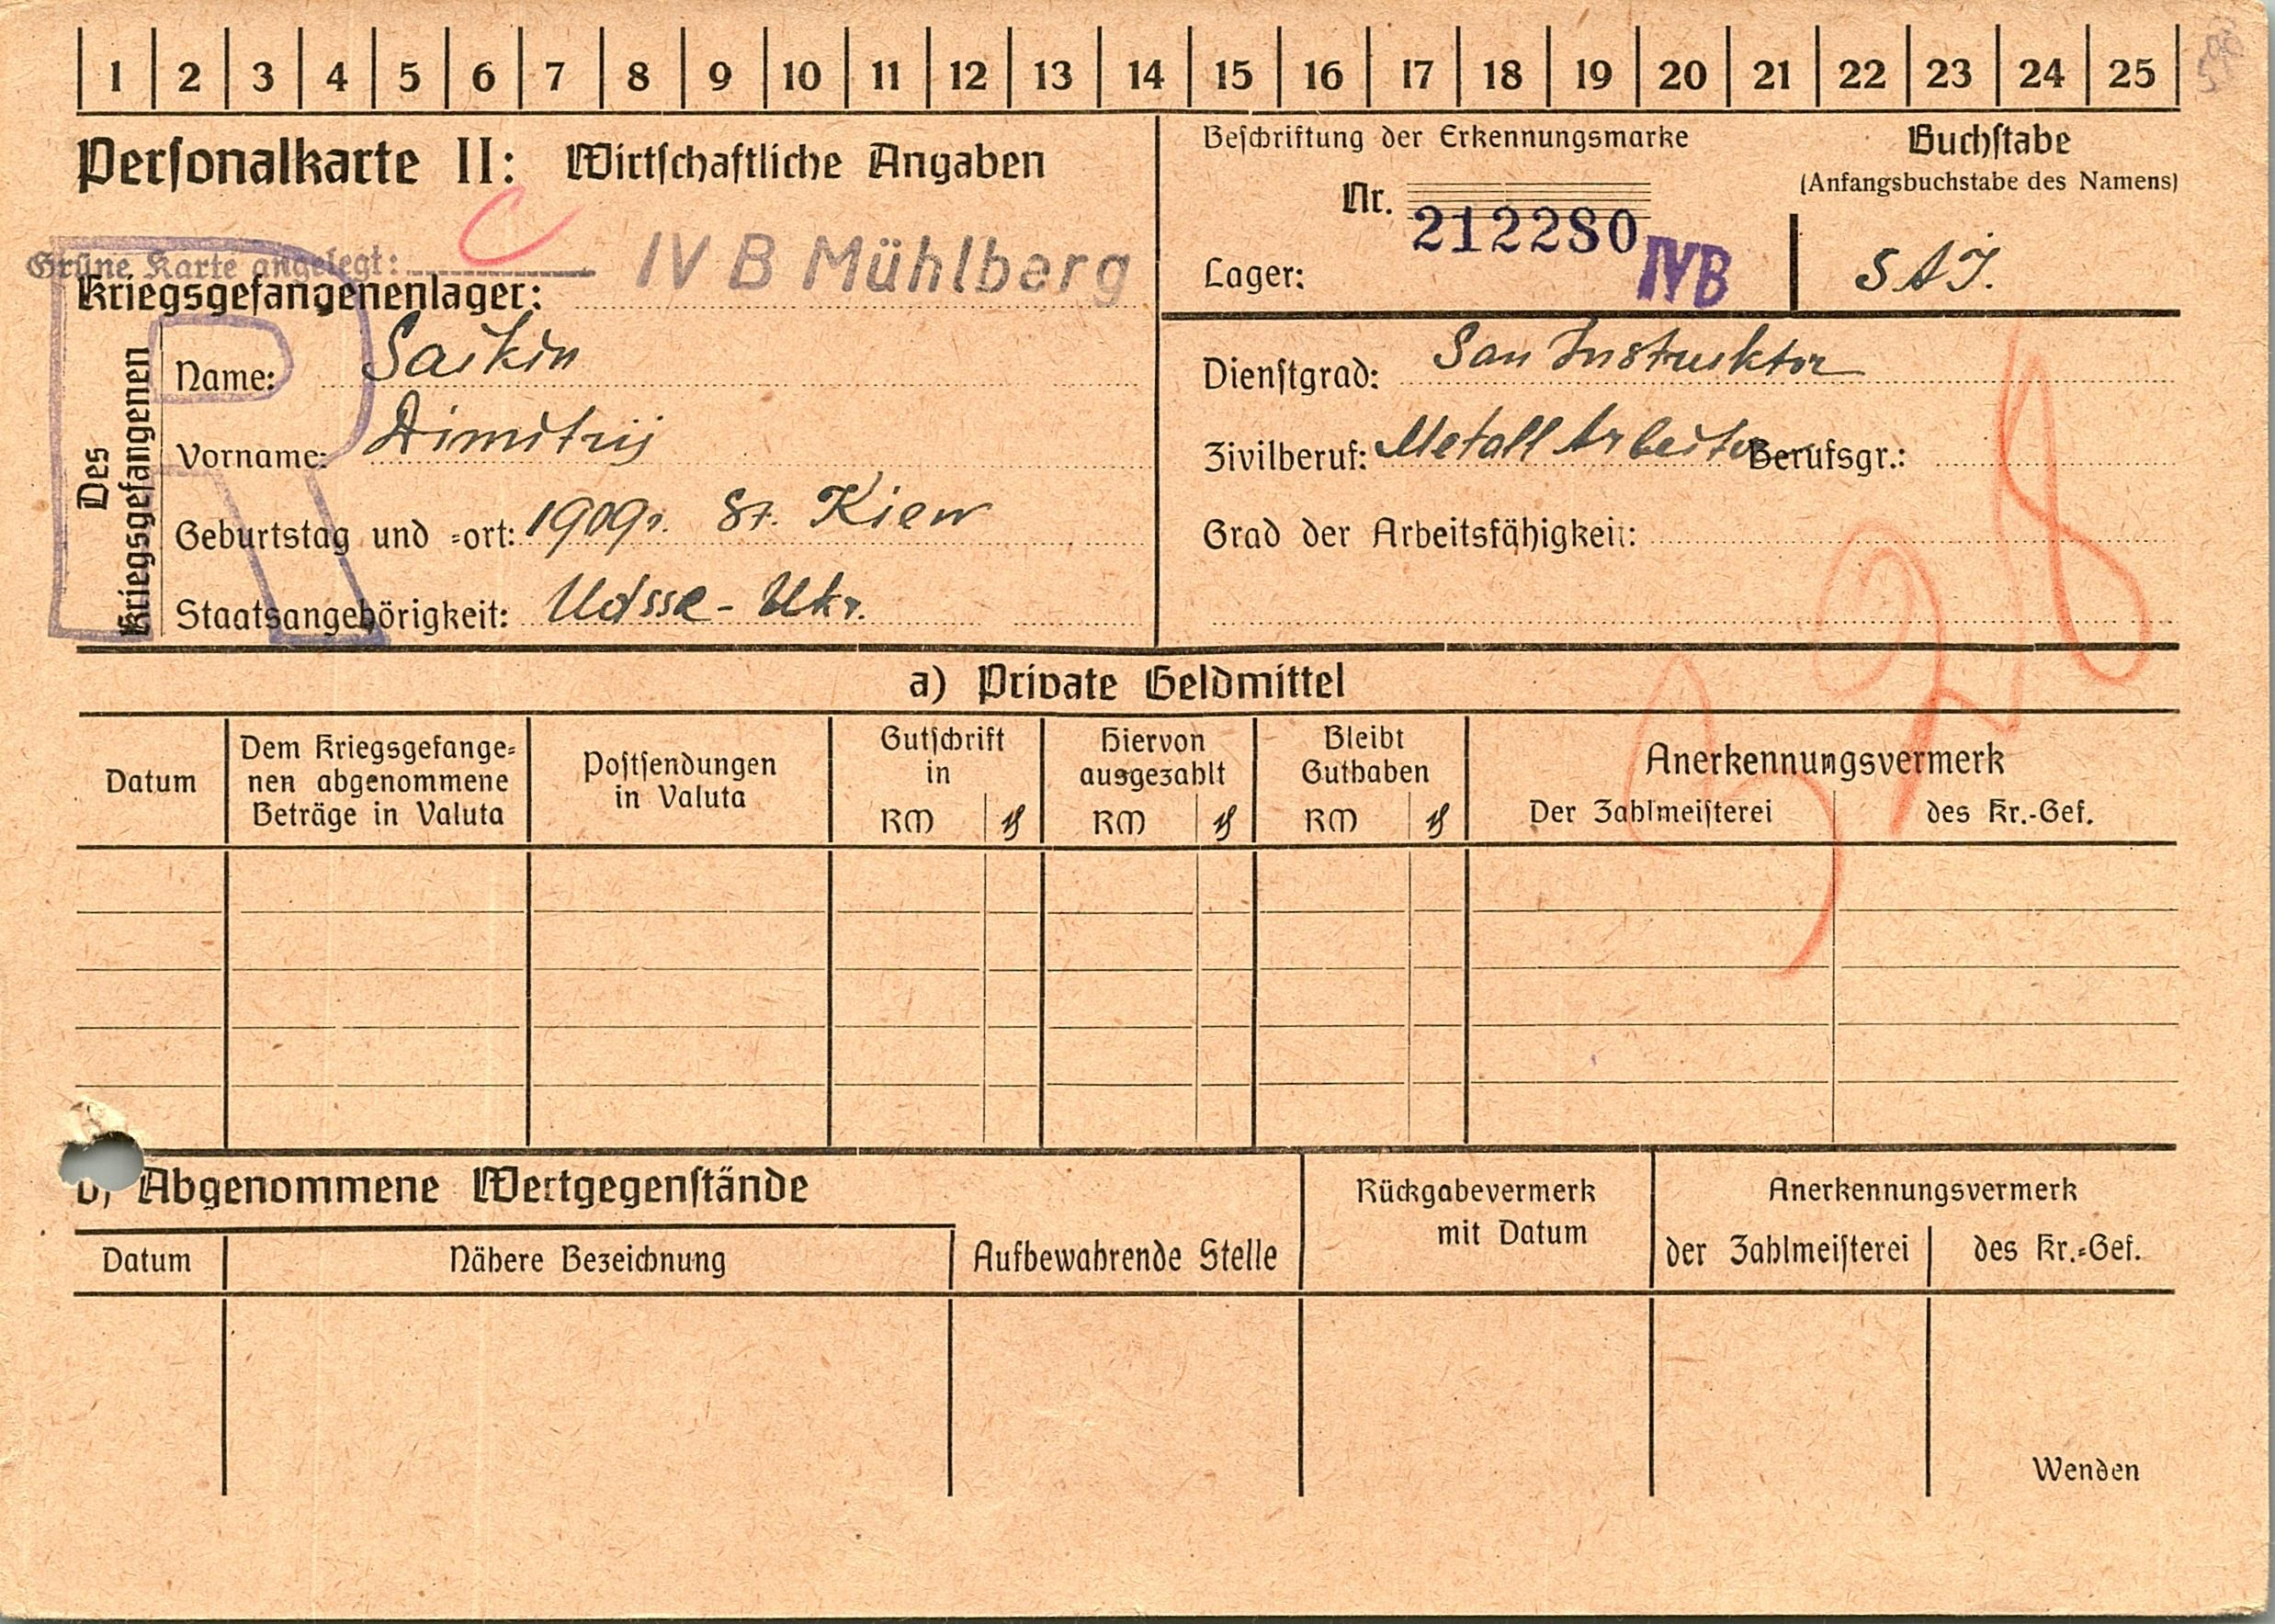 1 2 3 4 5 6 7 8 9 10 11 12 13 14 15 16 17 18 19 20 21 22 23 24 25
Personalkarte II: Wirtschaftliche Angaben
Grüne Karte angelegt:
Kriegsgefangenenlager: IV B Mühlberg
Beschriftung der Erkennungsmarke
Nr. 212280
Lager: IVB
Buchstabe
(Anfangsbuchstabe des Namens)
SAJ.
R
Des Kriegsgefangenen
Name: Saikin
Vorname: Dimitrij
Geburtstag und -ort: 1909. St. Kiew
Staatsangehörigkeit: Udssr - Ukr.
Dienstgrad: San Instruktor
Zivilberuf: Metall Arbeiter Berufsgr.:
Grad der Arbeitsfähigkeit:
328
a) Private Geldmittel
Datum
Dem Kriegsgefange-
nen abgenommene
Beträge in Valuta
Postsendungen
in Valuta
Gutschrift
in
RM ₰
Hiervon
ausgezahlt
RM ₰
Bleibt
Guthaben
RM ₰
Anerkennungsvermerk
Der Zahlmeisterei des Kr.-Gef.
b) Abgenommene Wertgegenstände
Datum Nähere Bezeichnung
Aufbewahrende Stelle
Rückgabevermerk
mit Datum
Anerkennungsvermerk
der Zahlmeisterei des Kr.-Gef.
Wenden